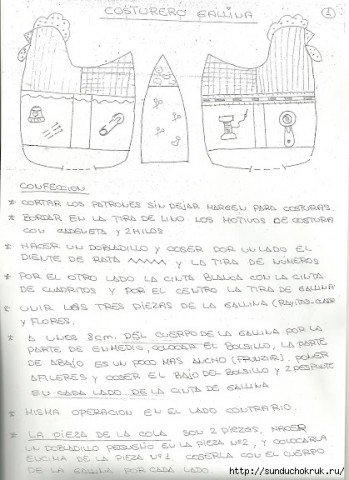 COSTURERO GALLINA
1
CONFECCION
* CORTAR LOS PATRONES SIN DEJAR MARGEN PARA COSTURAS.
* BORDAR EN LA TIRA DE LINO LOS MOTIVOS DE COSTURA
CON CADENETA Y 2 HILOS
* HACER UN DOBLADILLO Y COSER POR UN LADO EL
DIENTE DE RATA Y LA TIRA DE NÚMEROS
* POR EL OTRO LADO LA CINTA BLANCA CON LA CINTA
DE CUADRITOS Y POR EL CENTRO LA TIRA DE GALLINA
* UNIR LAS TRES PIEZAS DE LA GALLINA
Y FLORES.
* A UNOS 8cm. DEL CUERPO DE LA GALLINA POR LA
PARTE DE ENMEDIO, COLOCAR EL BOLSILLO, LA PARTE
DE ABAJO ES UN POCO MAS ANCHO (FRUNCIR). PONER
ALFILERES Y COSER EL BAJO DEL BOLSILLO Y 2 PESPUNTE
EN CADA LADO DE LA CINTA DE GALLINA
* MISMA OPERACION EN EL LADO CONTRARIO.
* LA PIEZA DE LA COLA SON 2 PIEZAS, HACER
UN DOBLADILLO PEQUEÑO EN LA PIEZA Nº2, Y COLOCARLA
ENCIMA DE LA PIEZA Nº1 COSERLA CON EL CUERPO
DE LA GALLINA POR CADA LADO
http://sunduchokruk.ru/